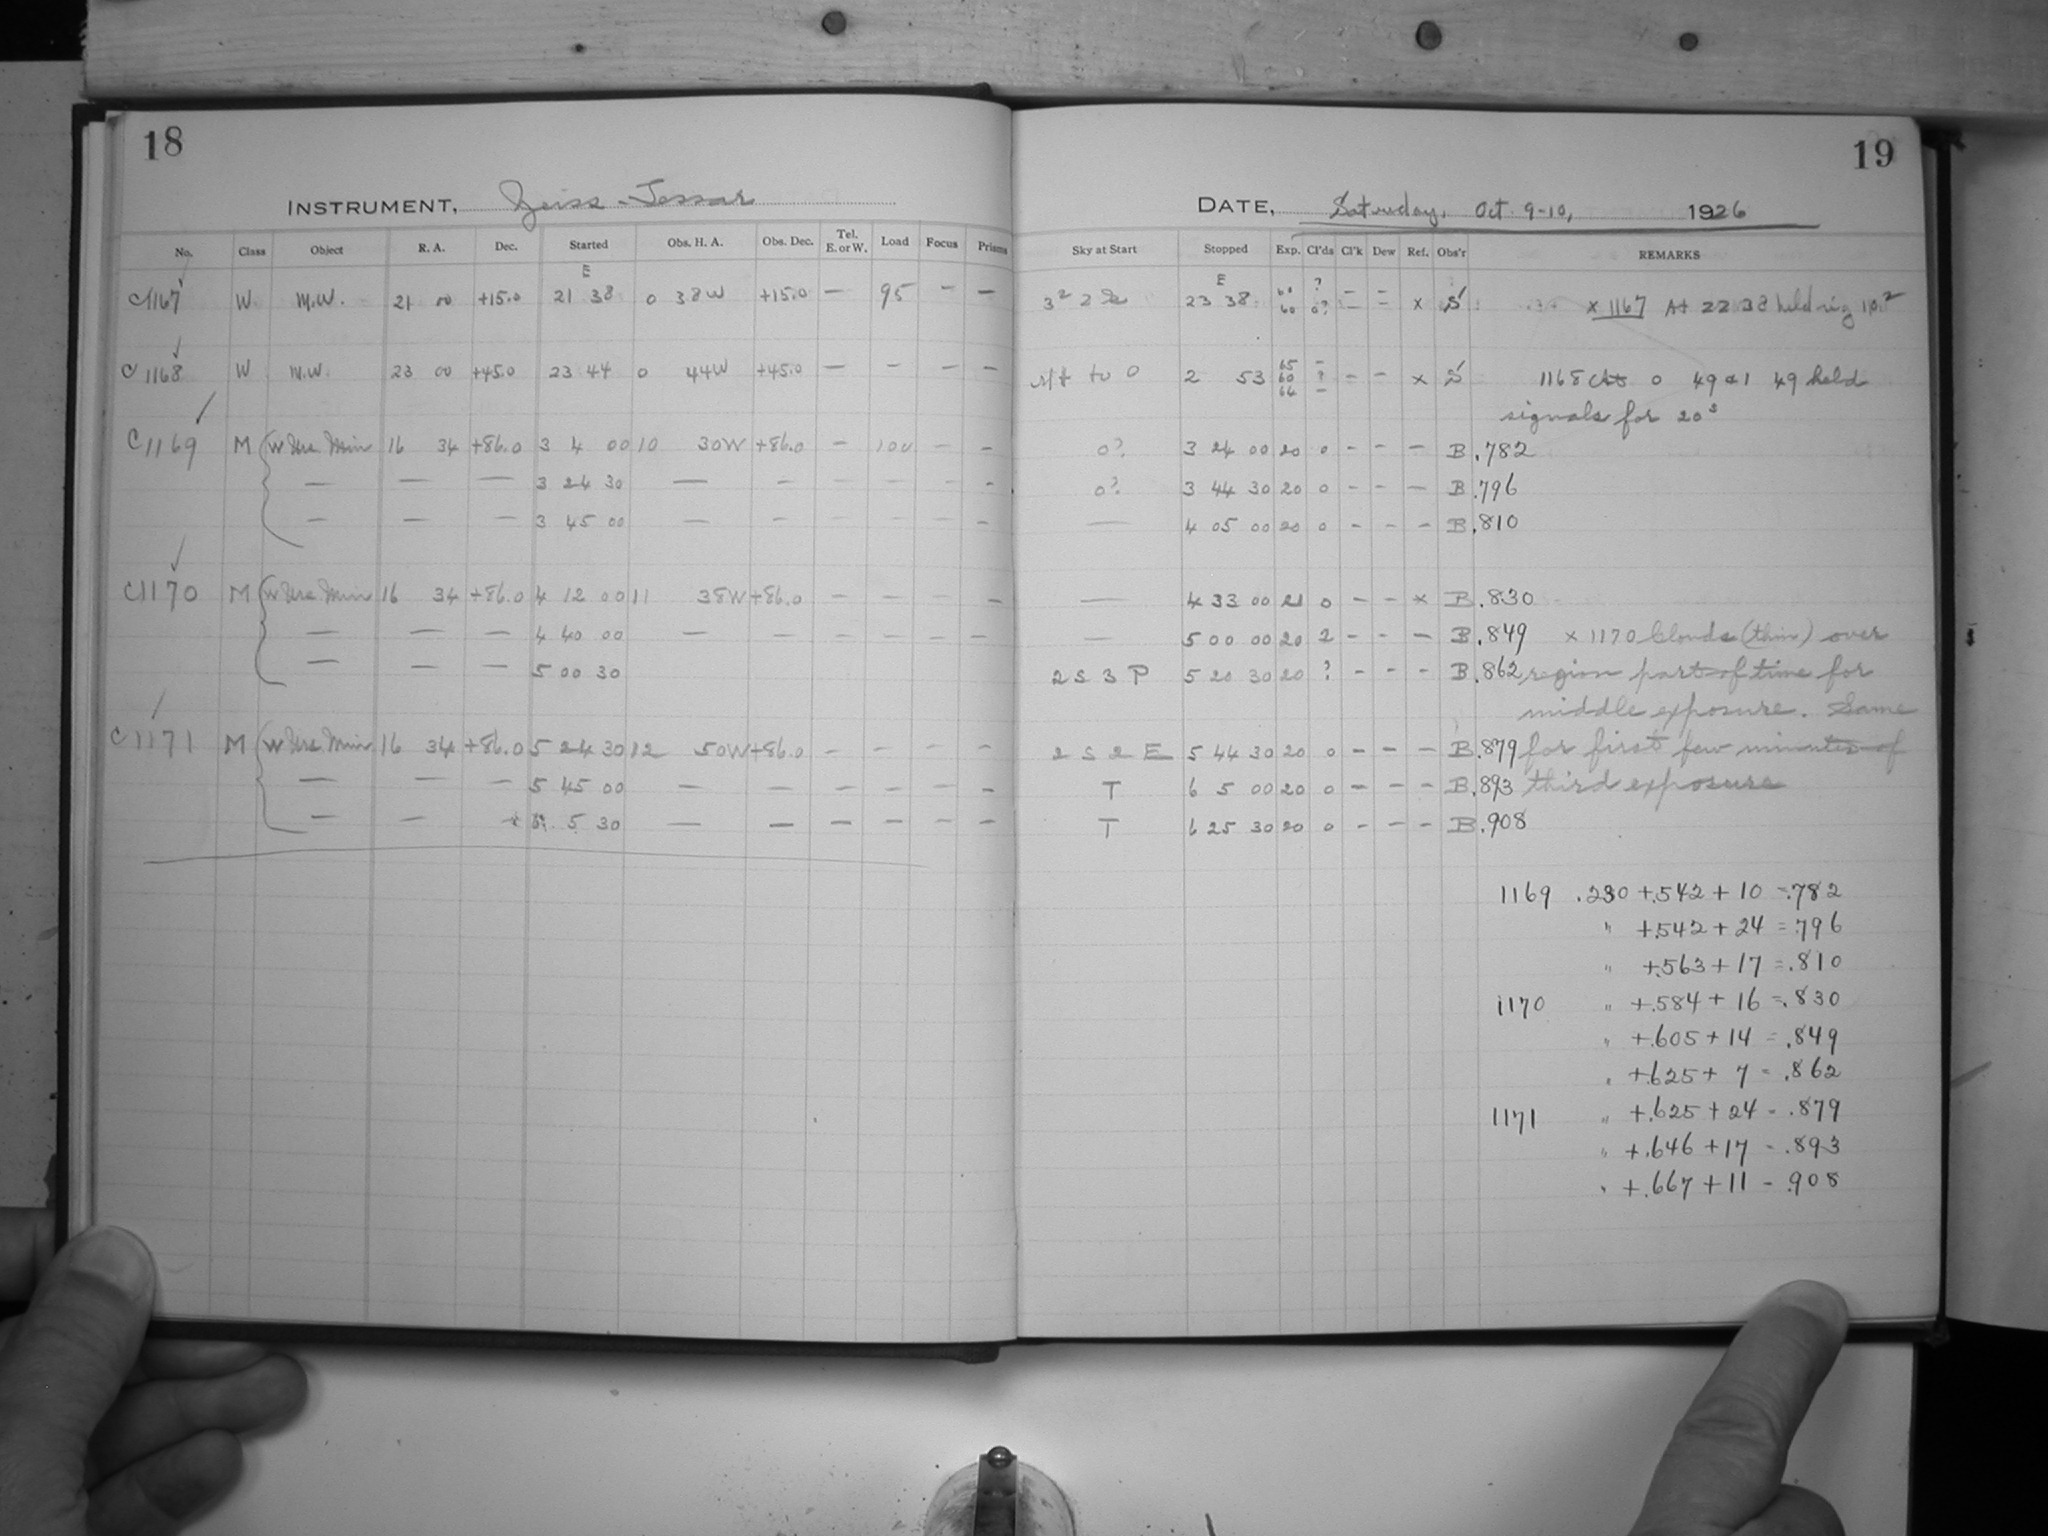 18
INSTRUMENT, Zeiss-Tessar
No. Class Object R. A. Dec. Started Obs. H. A. Obs. Dec. Tel. E. or W. Load Focus Prisms
E
C1167 W. M.W. 21 00 +15.0 21 38 0 38W +15.0 — 95 — —
C1168 W M.W. 23 00 +45.0 23 44 0 44W +45.0 — — — —
C1169 M W Urs Min 16 34 +86.0 3 4 00 10 30W +86.0 — 100 — —
— — — 3 24 30 — — — — — —
— — — 3 45 00 — — — — — —
C1170 M W Urs Min 16 34 +86.0 4 12 00 11 38W +86.0 — — — —
— — — 4 40 00 — — — — — —
— — — 5 00 30
C1171 M W Urs Min 16 34 +86.0 5 24 30 12 50W +86.0 — — — —
— — — 5 45 00 — — — — — —
— — — 5 30 — — — — — —
19
DATE, Saturday, Oct. 9-10, 1926
Sky at Start Stopped Exp. Cl'ds Cl'k Dew Ref. Obs'r REMARKS
E
23 38 60 ? — — x S x 1167 At 22 38 held rig
60 0? — —
to 0 2 53 65 — — — x S 1168 0 49 & 1 49 held
60 ?
64 —
signals for 20s
0? 3 24 00 20 0 — — — B .782
0? 3 44 30 20 0 — — — B .796
— 4 05 00 20 0 — — — B .810
— 4 33 00 21 0 — — x B .830
— 5 00 00 20 2 — — — B .849 x 1170 Clouds (thin) over
2 S 3 P 5 20 30 20 ? — — — B .862 region part of time for
middle exposure. Same
2 S 2 E 5 44 30 20 0 — — — B .879 for first few minutes of
T 6 5 00 20 0 — — — B .893 third exposure
T 6 25 30 20 0 — — — B .908
1169 .230 +.542 + 10 = .782
" +.542 + 24 = .796
" +.563 + 17 = .810
1170 " +.584 + 16 = .830
" +.605 + 14 = .849
" +.625 + 7 = .862
1171 " +.625 + 24 = .879
" +.646 + 17 = .893
" +.667 + 11 = .908